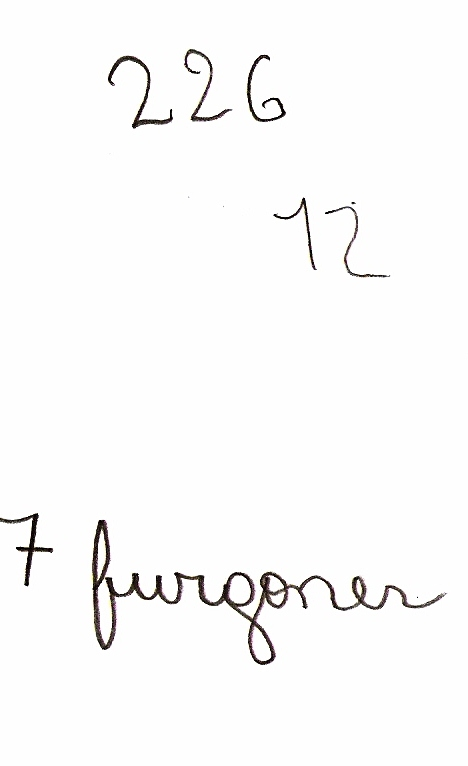 226
12
7 furgoner